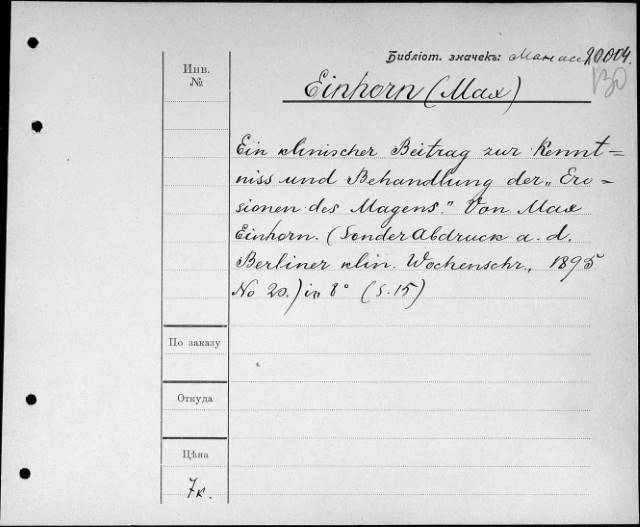 Библіот. значекъ: Манасс 20004.
Инв.
№
Einhorn (Max)
Ein klinischer Beitrag zur Kennt=
niss und Behandlung der „Ero-
sionen des Magens." Von Max
Einhorn. (Sonder Abdruck a. d.
Berliner klin. Wochenschr., 1895
No 20.) in 8° (S. 15)
По заказу
Откуда
Цѣна
7к.